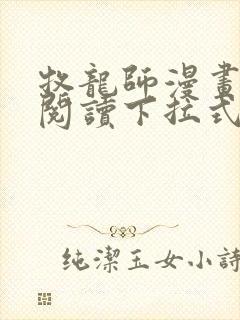 牧龍師漫畫
閱讀下拉式
純潔玉女小詩